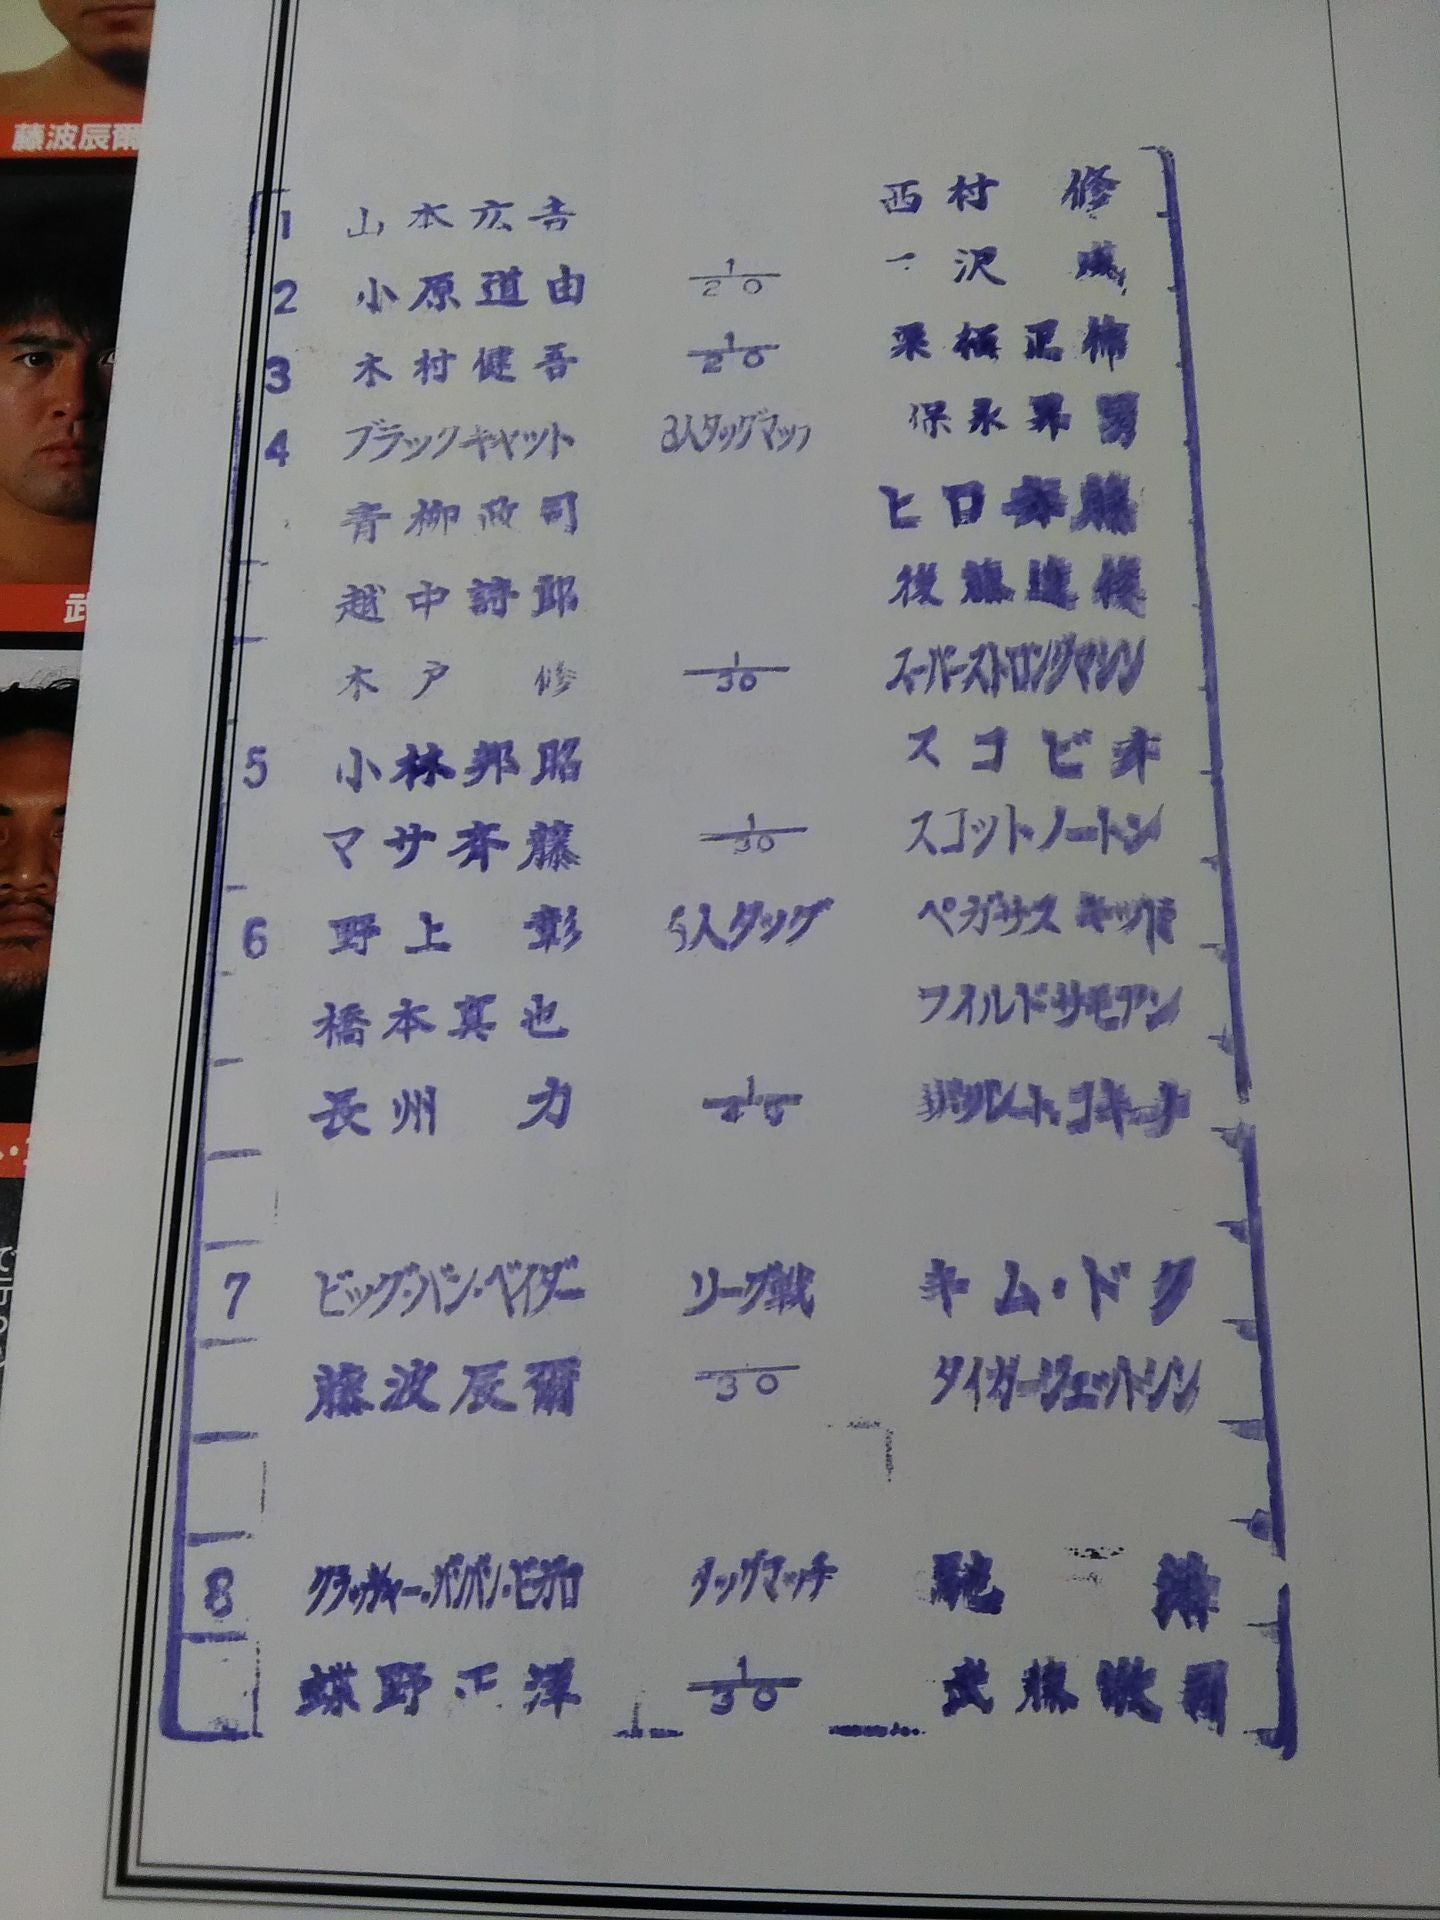 藤波辰爾
武
1 山本広吉 西村 修
2 小原道由 1/20 一沢 威
3 木村健吾 1/20 栗栖正伸
4 ブラックキャット 8人タッグマッチ 保永昇男
青柳政司 ヒロ斉藤
越中詩郎 後藤達俊
木戸 修 1/30 スーパーストロングマシン
5 小林邦昭 スコピオ
マサ斉藤 1/30 スコット・ノートン
6 野上 彰 6人タッグ ペガサスキッド
橋本真也 ワイルドサモアン
長州 力 1/45 コキーナ
7 ビッグ・バン・ベイダー リーグ戦 キム・ドク
藤波辰爾 30 タイガージェットシン
8 クラッシャー・バンバン・ビガロ タッグマッチ 馳 浩
蝶野正洋 1/30 武藤敬司